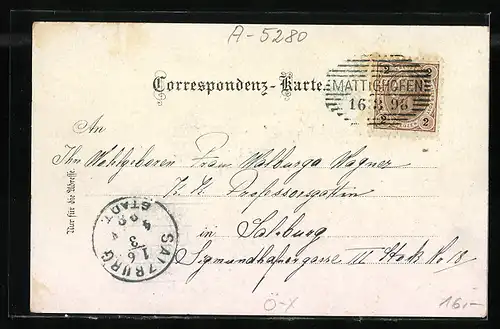 A-5280
Correspondenz-Karte.
MATTIGHOFEN
16 3 98
2 2
2 2
An
Ihr Wohlgeboren Frau Walburga Wagner
K. K. Professorsgattin
in Salzburg
Sigmundhafnergasse III Stock No 18
Nur für die Adresse.
SALZBURG
STADT.
16
3
Ö-X
16,-